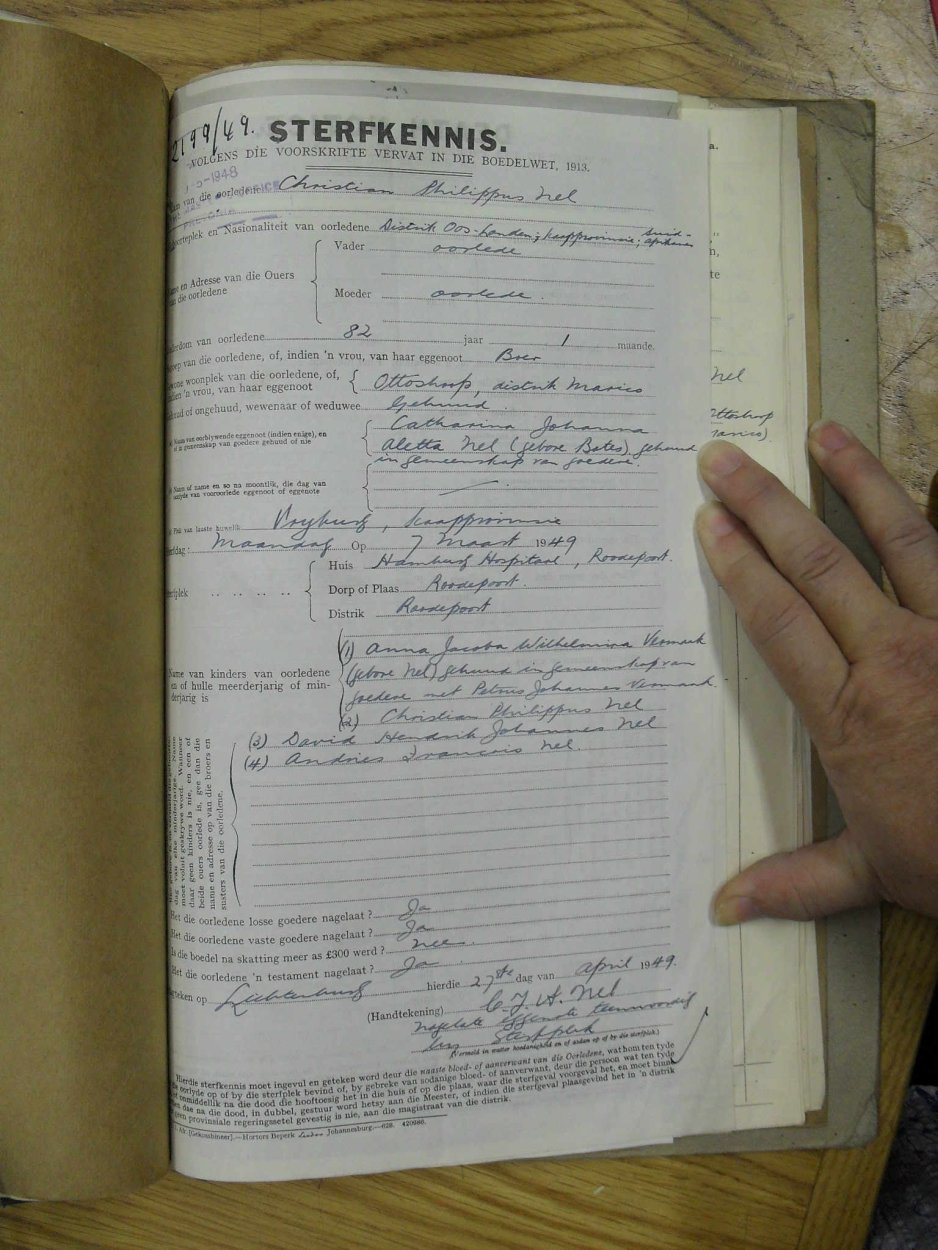 2199/49. STERFKENNIS.
VOLGENS DIE VOORSKRIFTE VERVAT IN DIE BOEDELWET, 1913.
-1948
van die oorledene Christian Philippus Nel
en Nasionaliteit van oorledene Distrik Oos-Londen; Kaapprovinsie; Suid-Afrikaner
Vader oorlede
en Adresse van die Ouers
van die oorledene
Moeder oorlede.
van oorledene 82 jaar 1 maande.
van die oorledene, of, indien 'n vrou, van haar eggenoot Boer
woonplek van die oorledene, of, indien 'n vrou, van haar eggenoot Ottoshoop, distrik Marico
of ongehuud, wewenaar of weduwee Gehuud.
Naam van oorblywende eggenoot (indien enige), en of in gemeenskap van goedere gehuud of nie
Catharina Johanna
Aletta Nel (gebore Bates) gehuud
in gemeenskap van goedere.
Naam of name en so na moontlik, die dag van van vooroorlede eggenoot of eggenote —
Plek van laaste huwelik Vryburg, Kaapprovinsie
Maandag Op 7 Maart 1949
Huis Hamburg Hospitaal, Roodepoort.
Dorp of Plaas Roodepoort.
Distrik Roodepoort
Name van kinders van oorledene
en of hulle meerderjarig of minderjarig is
(1) Anna Jacoba Wilhelmina Vermaak
(gebore Nel) gehuud in gemeenskap van
goedere met Petrus Johannes Vermaak.
(2) Christian Philippus Nel
(3) David Hendrik Johannes Nel
(4) Andries Francois Nel.
dag van elke minderjarige
moet voluit geskrywe word. Wanneer
daar geen kinders is nie, en een of
beide ouers oorlede is, gee dan die
name en adresse op van die broers en
susters van die oorledene.
Het die oorledene losse goedere nagelaat? Ja
Het die oorledene vaste goedere nagelaat? Ja
Is die boedel na skatting meer as £300 werd? Nee.
Het die oorledene 'n testament nagelaat? Ja
op Lichtenburg hierdie 27ste dag van April 1949.
(Handtekening) C. J. A. Nel
nagelate eggenote teenwoordig
by Sterfplek
(Vermeld in watter hoedanigheid en of aldan op of by die sterfplek.)
Hierdie sterfkennis moet ingevul en geteken word deur die naaste bloed- of aanverwant van die Oorledene, wat hom ten tyde
oorlyde op of by die sterfplek bevind of, by gebreke van sodanige bloed- of aanverwant, deur die persoon wat ten tyde
onmiddellik na die dood die hooftoesig het in die huis of op die plaas, waar die sterfgeval voorgeval het, en moet binne
dae na die dood, in dubbel, gestuur word hetsy aan die Meester, of indien die sterfgeval plaasgevind het in 'n distrik
geen provinsiale regeringssetel gevestig is nie, aan die magistraat van die distrik.
Hortors Beperk Johannesburg.—628. 420986.
Nel
Ottoshoop